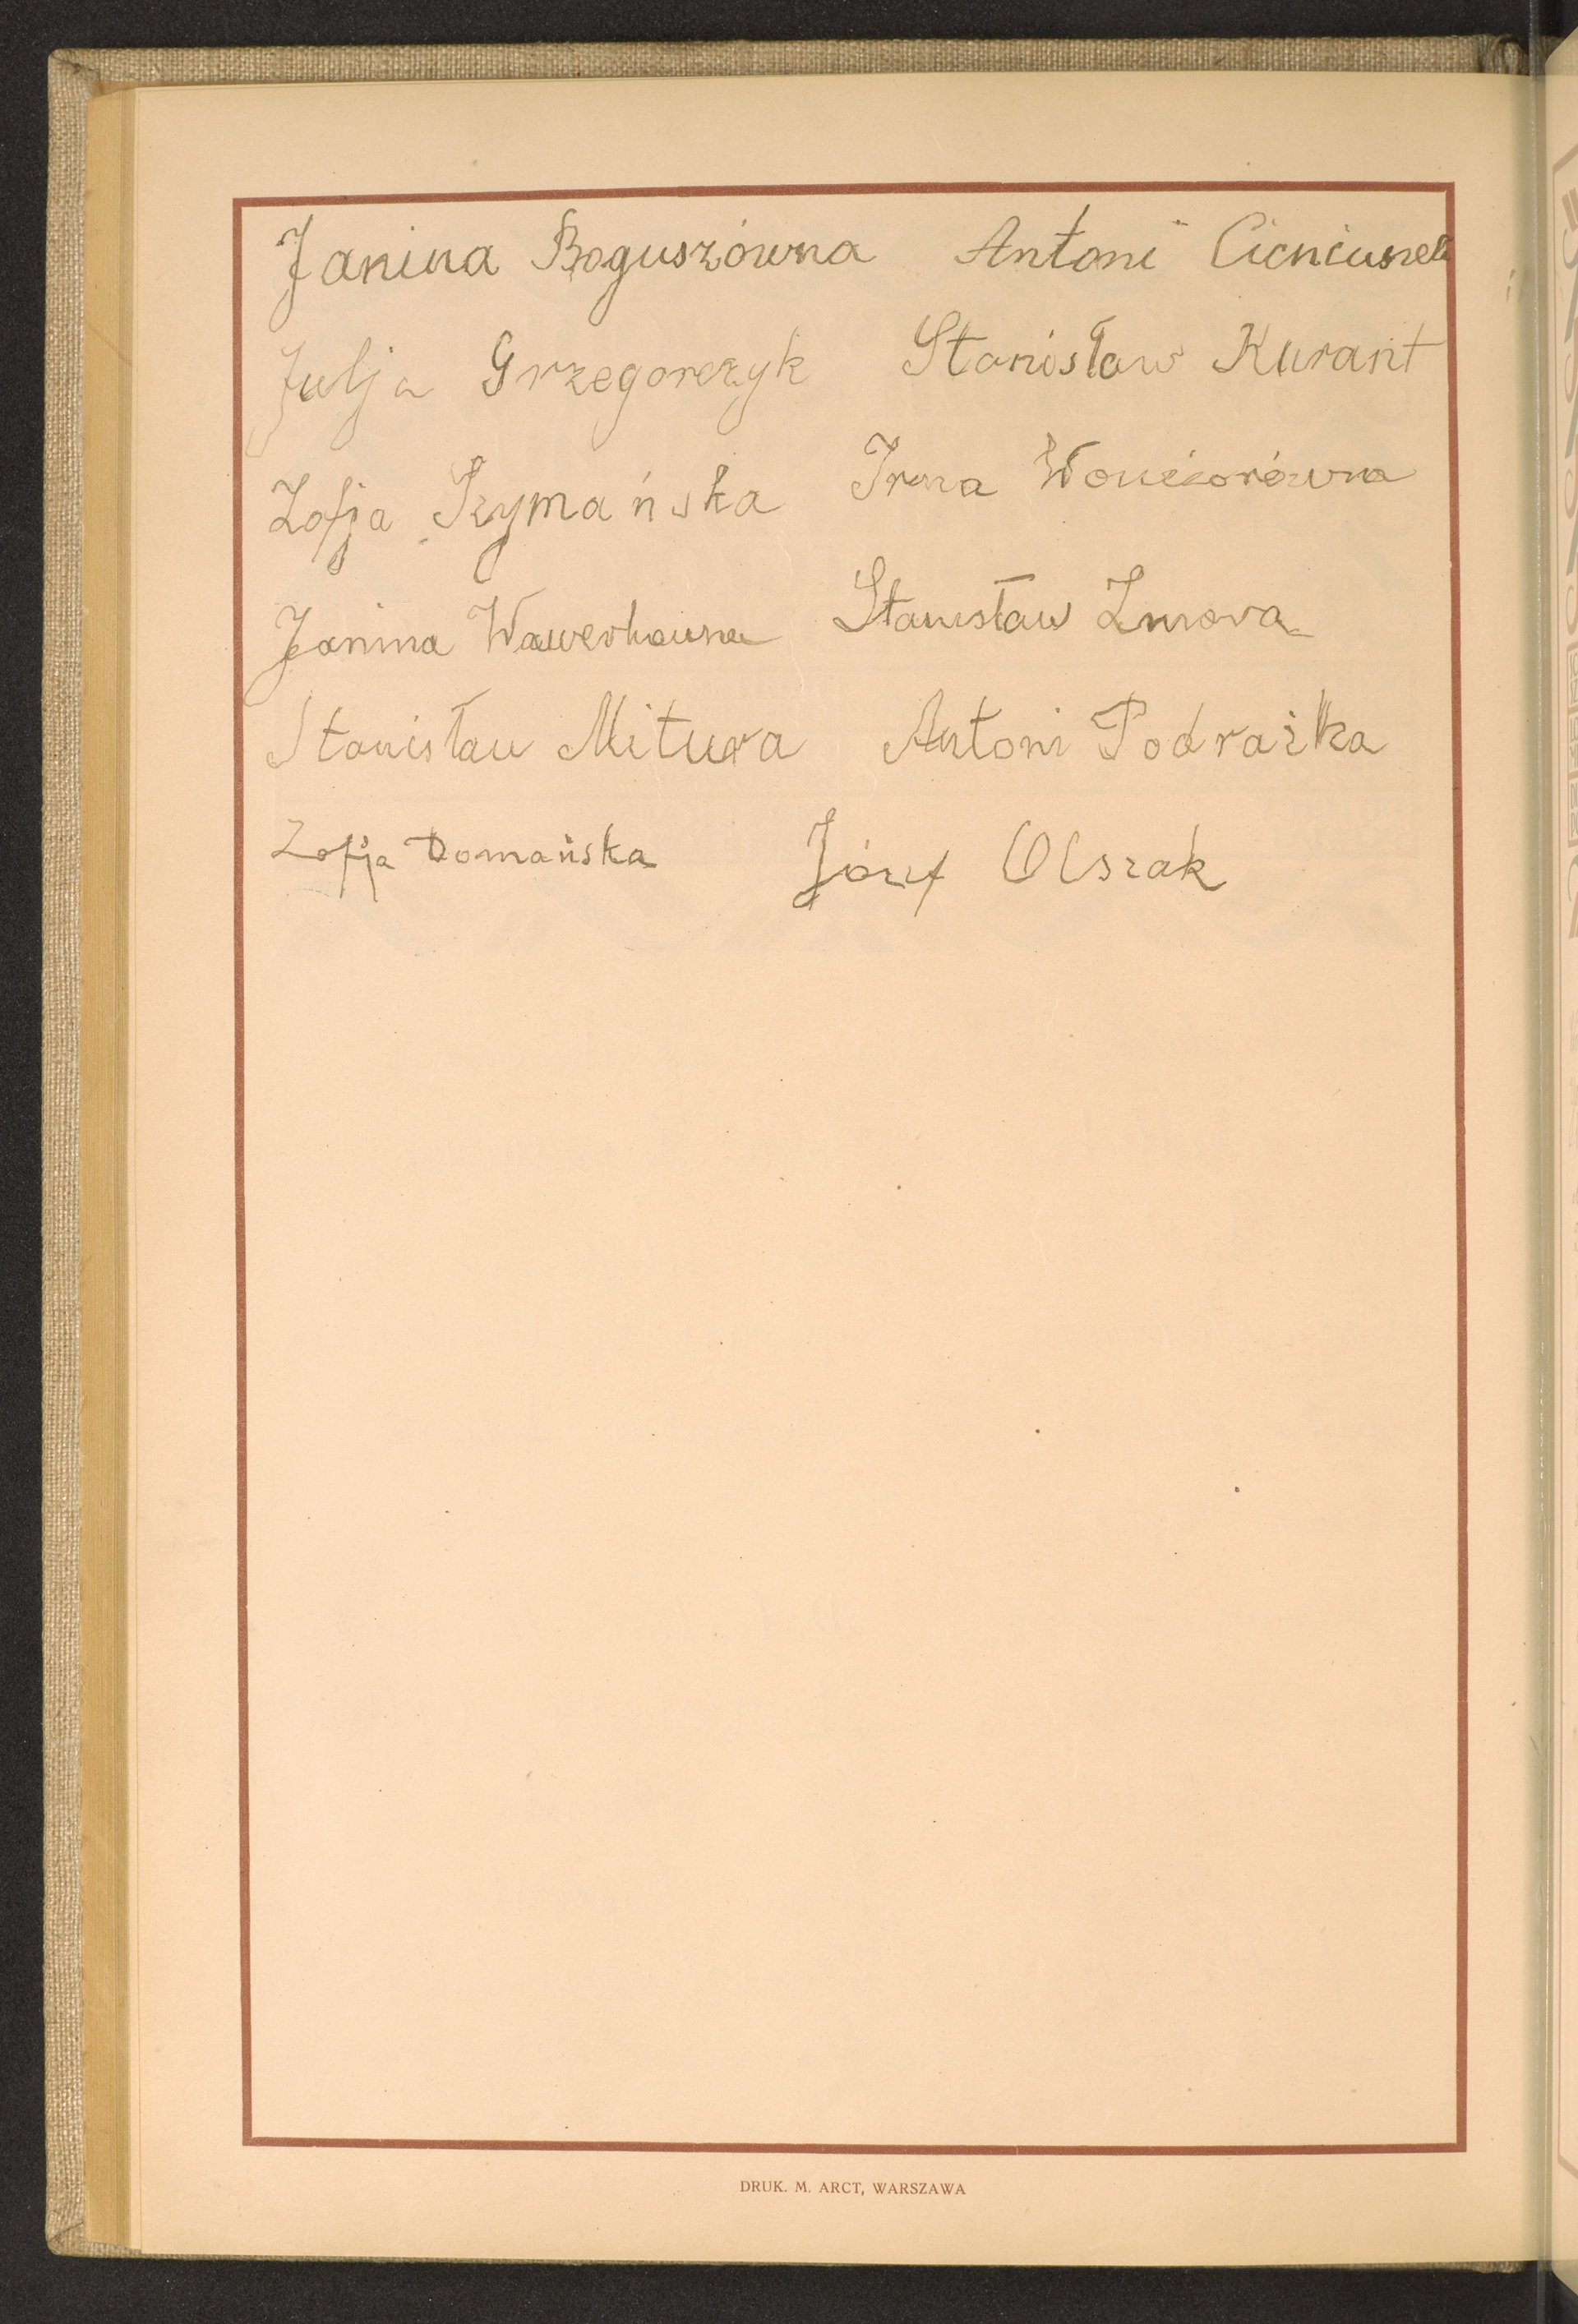 Janina Boguszówna Antoni
Julja Grzegorczyk Stanisław Kurant
Zofja Szymańska Irena
Janina Stanisław Zmora
Stanisław Mitura Antoni Podraźka
Zofja Domańska Józef Olszak
DRUK. M. ARCT, WARSZAWA